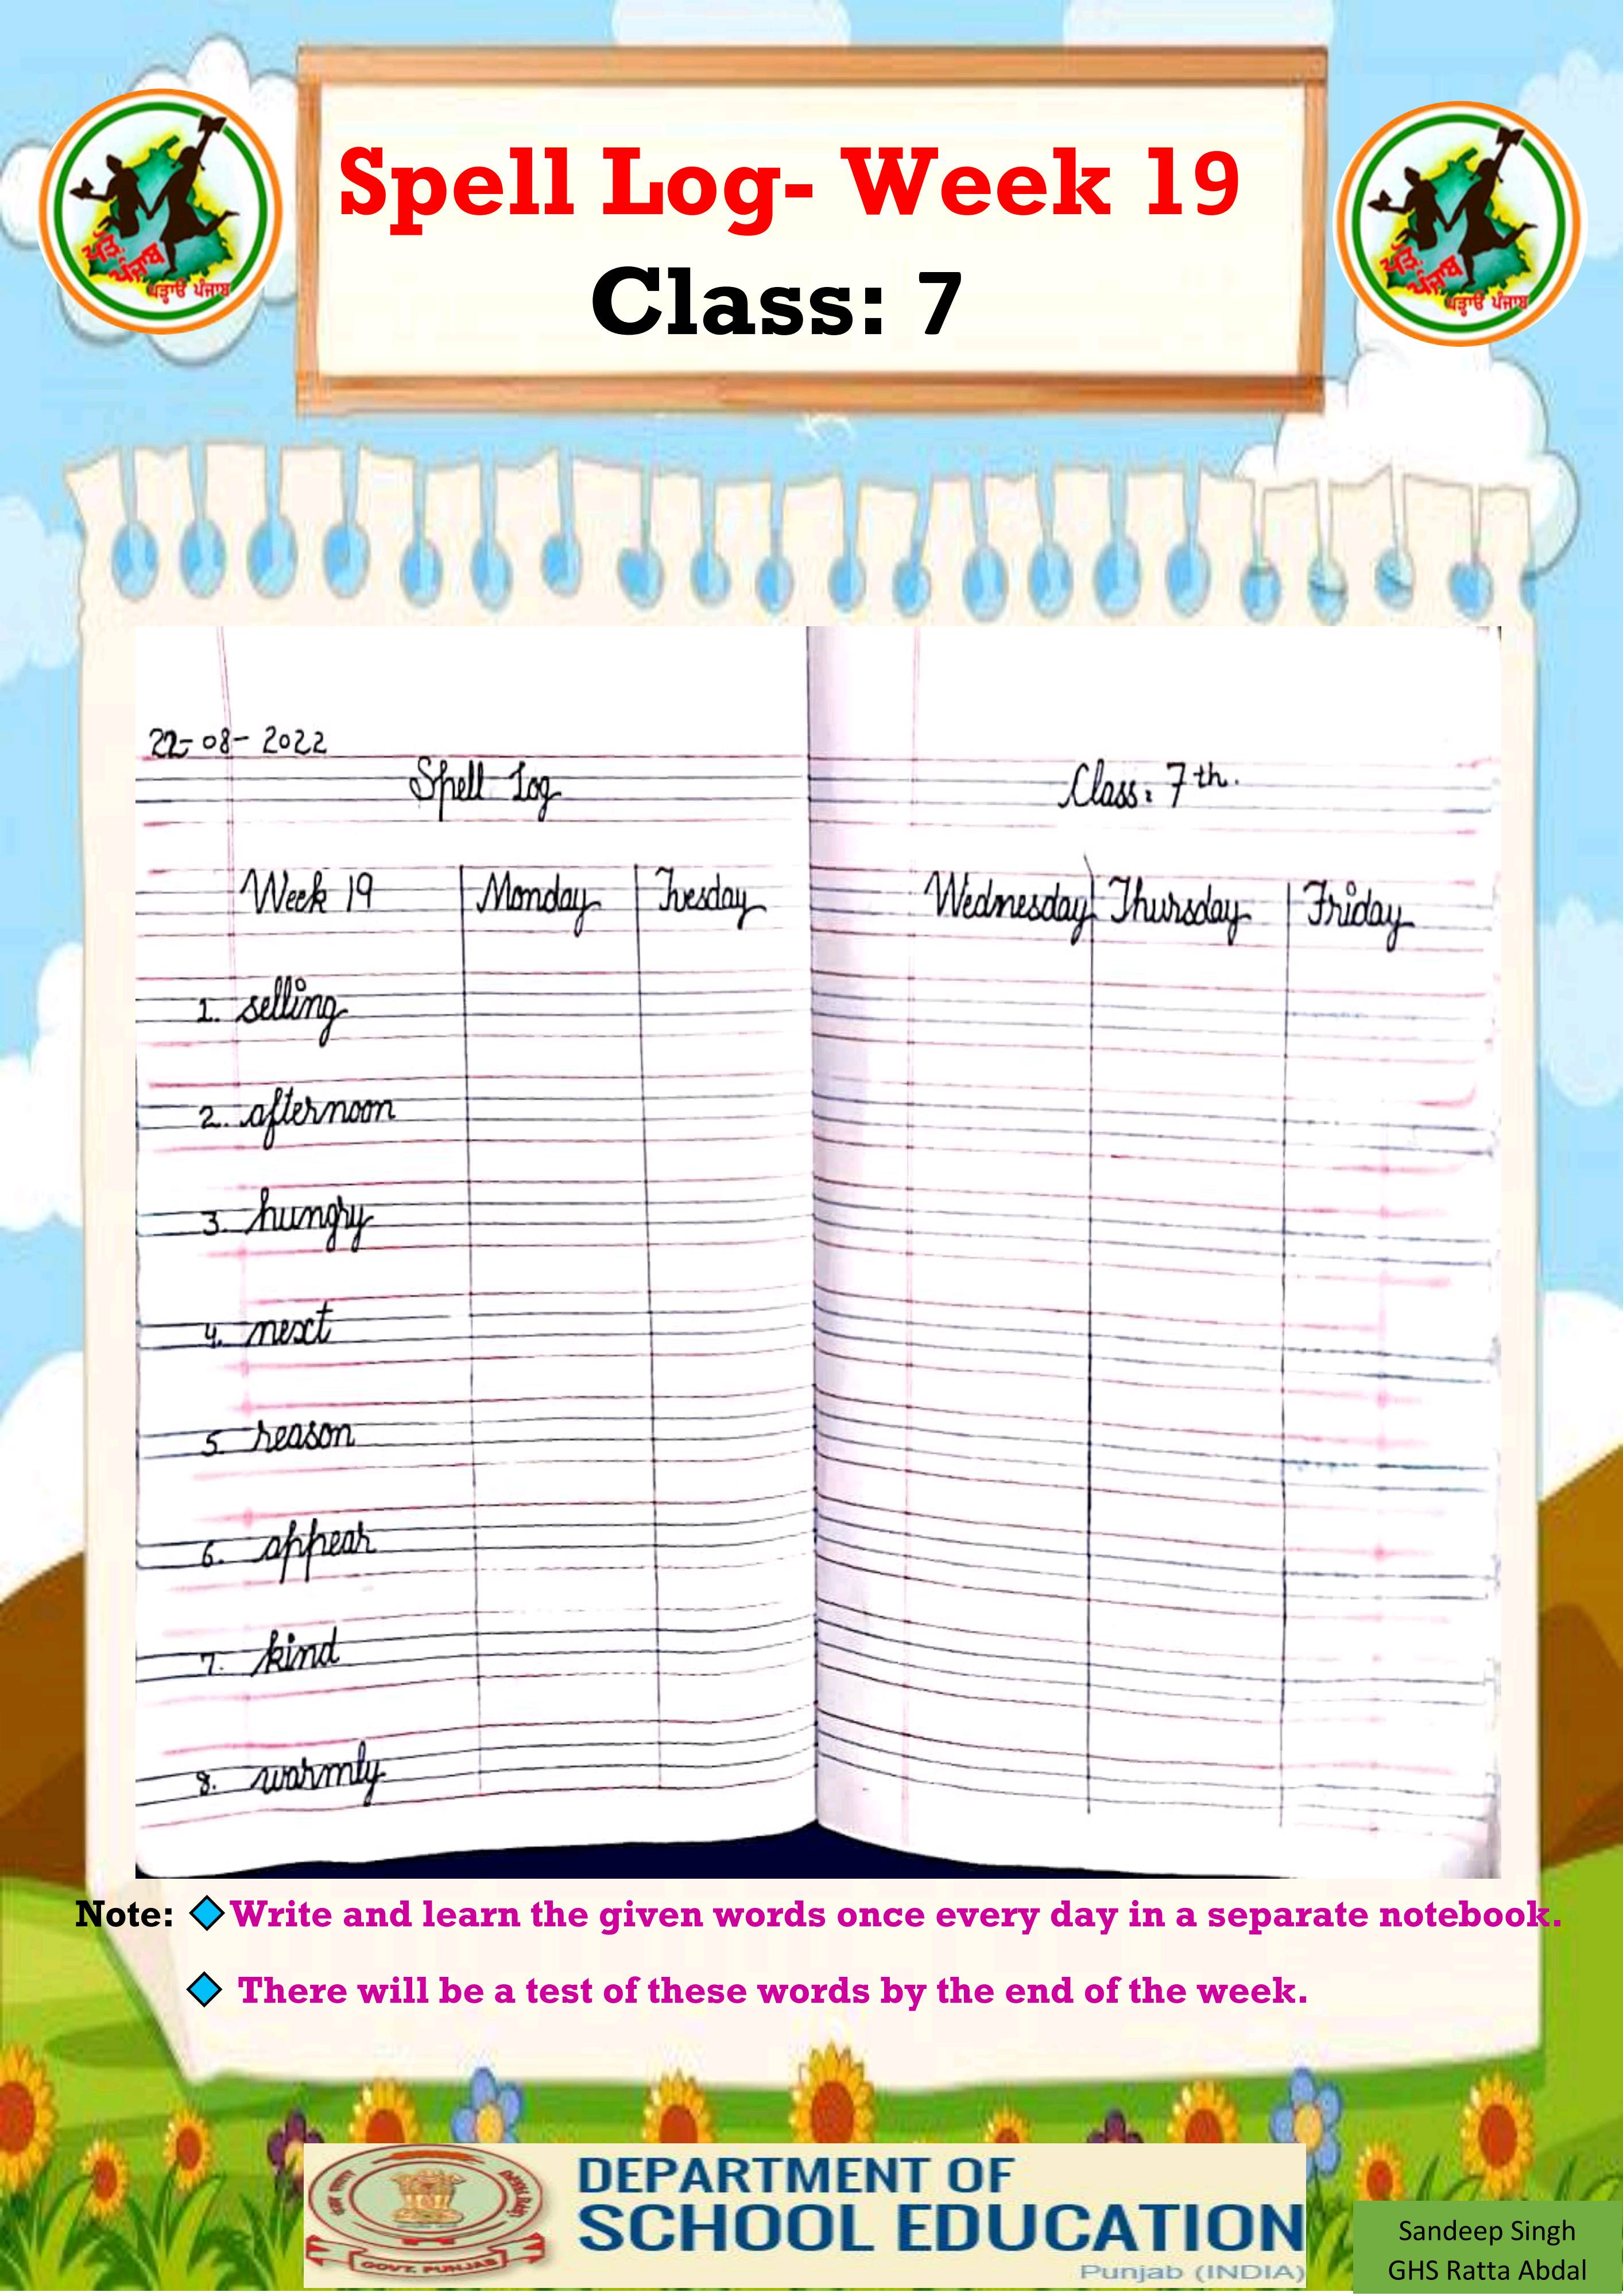 Spell Log- Week 19
Class: 7
ਪੜੋ ਪੰਜਾਬ
ਪੜ੍ਹਾਓ ਪੰਜਾਬ
ਪੜੋ ਪੰਜਾਬ
ਪੜ੍ਹਾਓ ਪੰਜਾਬ
22-08-2022
Spell Log
Class: 7th.
Week 19 Monday Tuesday Wednesday Thursday Friday
1. selling
2. afternoon
3. hungry
4. next
5 reason
6. appear
7. kind
8. warmly
Note: Write and learn the given words once every day in a separate notebook.
There will be a test of these words by the end of the week.
GOVT. PUNJAB
DEPARTMENT OF
SCHOOL EDUCATION
Punjab (INDIA)
Sandeep Singh
GHS Ratta Abdal